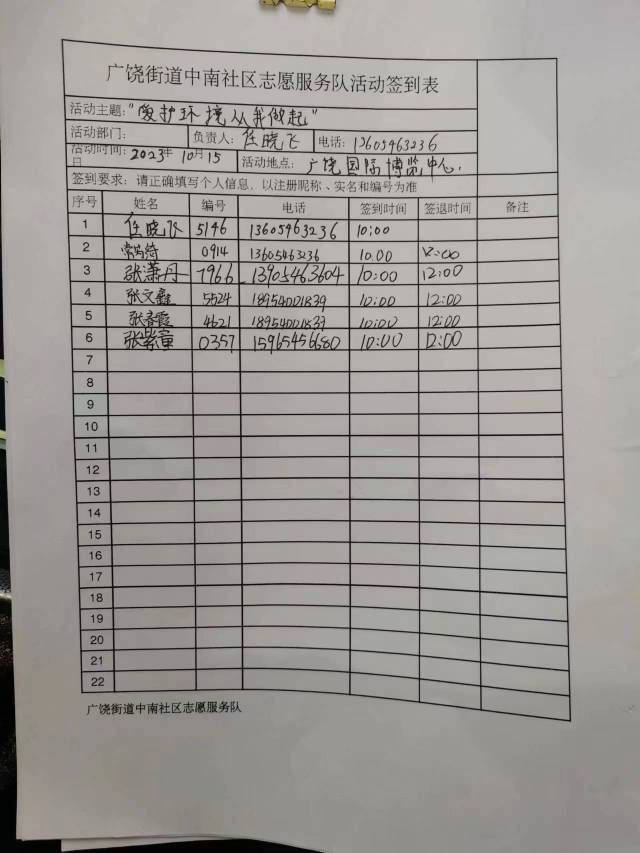 广饶街道中南社区志愿服务队活动签到表
活动主题："爱护环境从我做起"
活动部门： 负责人：任晓飞 电话：13605463236
活动时间：2023年10月15日 活动地点：广饶国际博览中心.
签到要求：请正确填写个人信息，以注册昵称、实名和编号为准
序号 姓名 编号 电话 签到时间 签退时间 备注
1 任晓飞 5146 13605463236 10:00
2 0914 13605463236 10.00 12:00
3 张潇丹 7966 13905463604 10:00 12:00
4 张文鑫 5524 18954001839 10:00 12:00
5 张春霞 4621 18954001839 10:00 12:00
6 张紫童 0357 15965456680 10:00 12:00
7
8
9
10
11
12
13
14
15
16
17
18
19
20
21
22
广饶街道中南社区志愿服务队